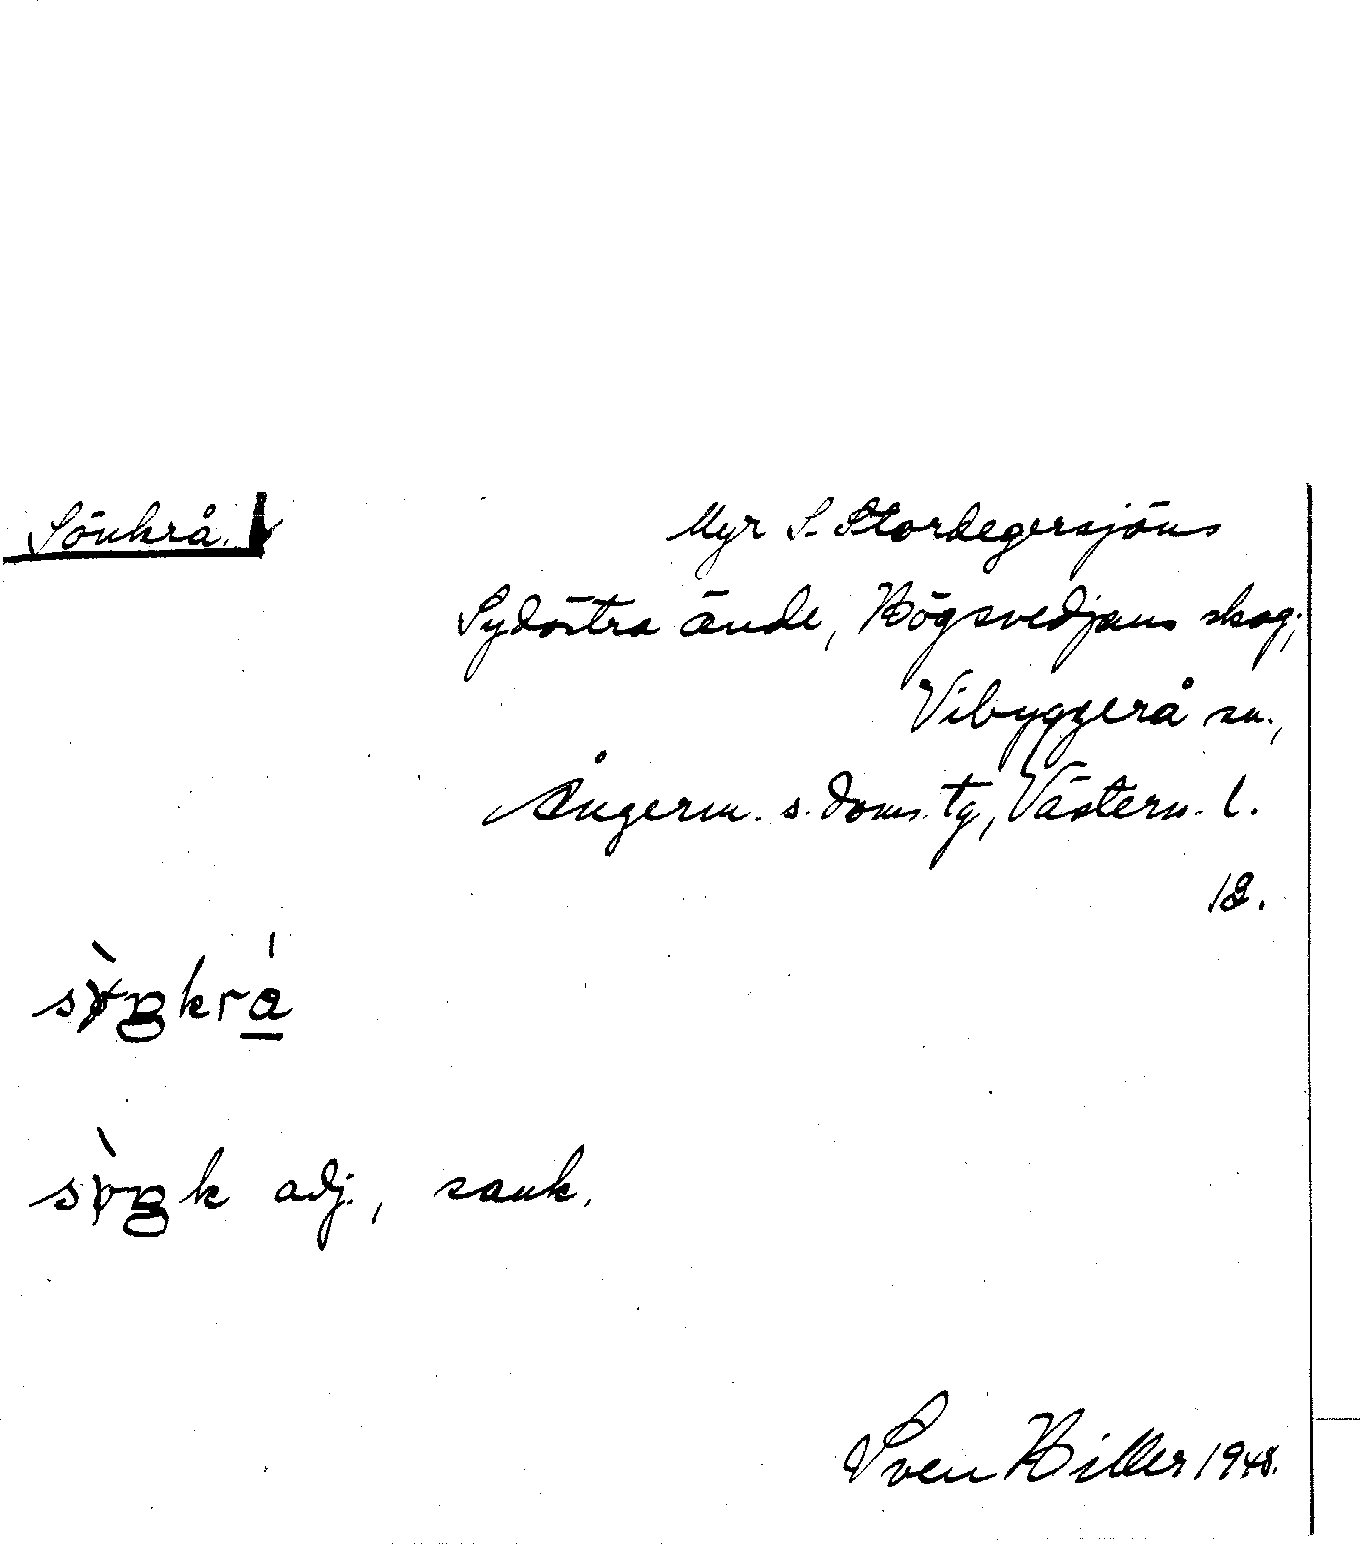 Sönkrå.
Myr S. Stordegersjöns
Sydöstra ände, Högsvedjans skog;
Vibyggerå sn.,
Ångerm. s. doms. tg, Västern. l.
18.
adj., sank.
Sven Hiller 1948.